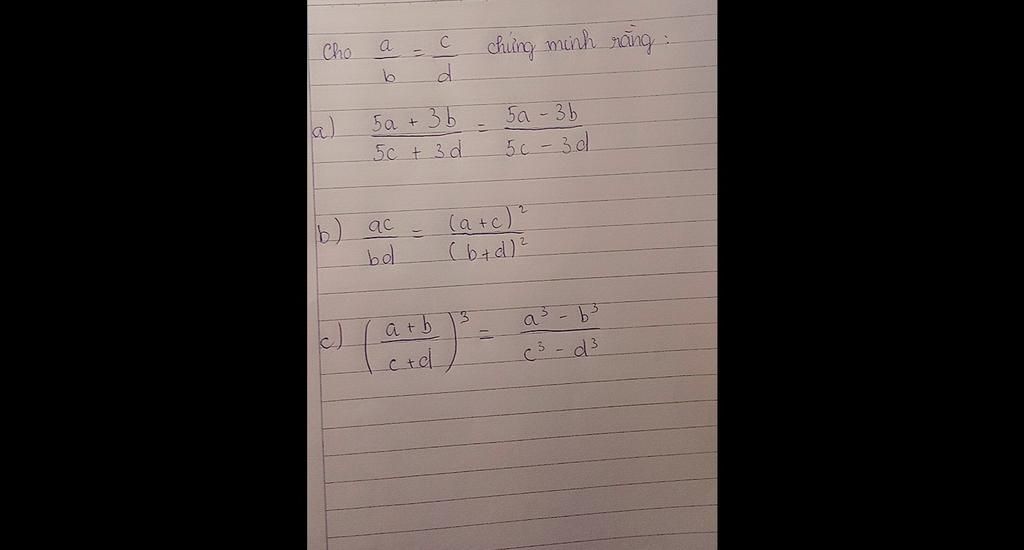 Cho a/b = c/d chứng minh rằng :
a) (5a + 3b)/(5c + 3d) = (5a - 3b)/(5c - 3d)
b) ac/bd = (a+c)²/(b+d)²
c) ((a+b)/(c+d))³ = (a³ - b³)/(c³ - d³)